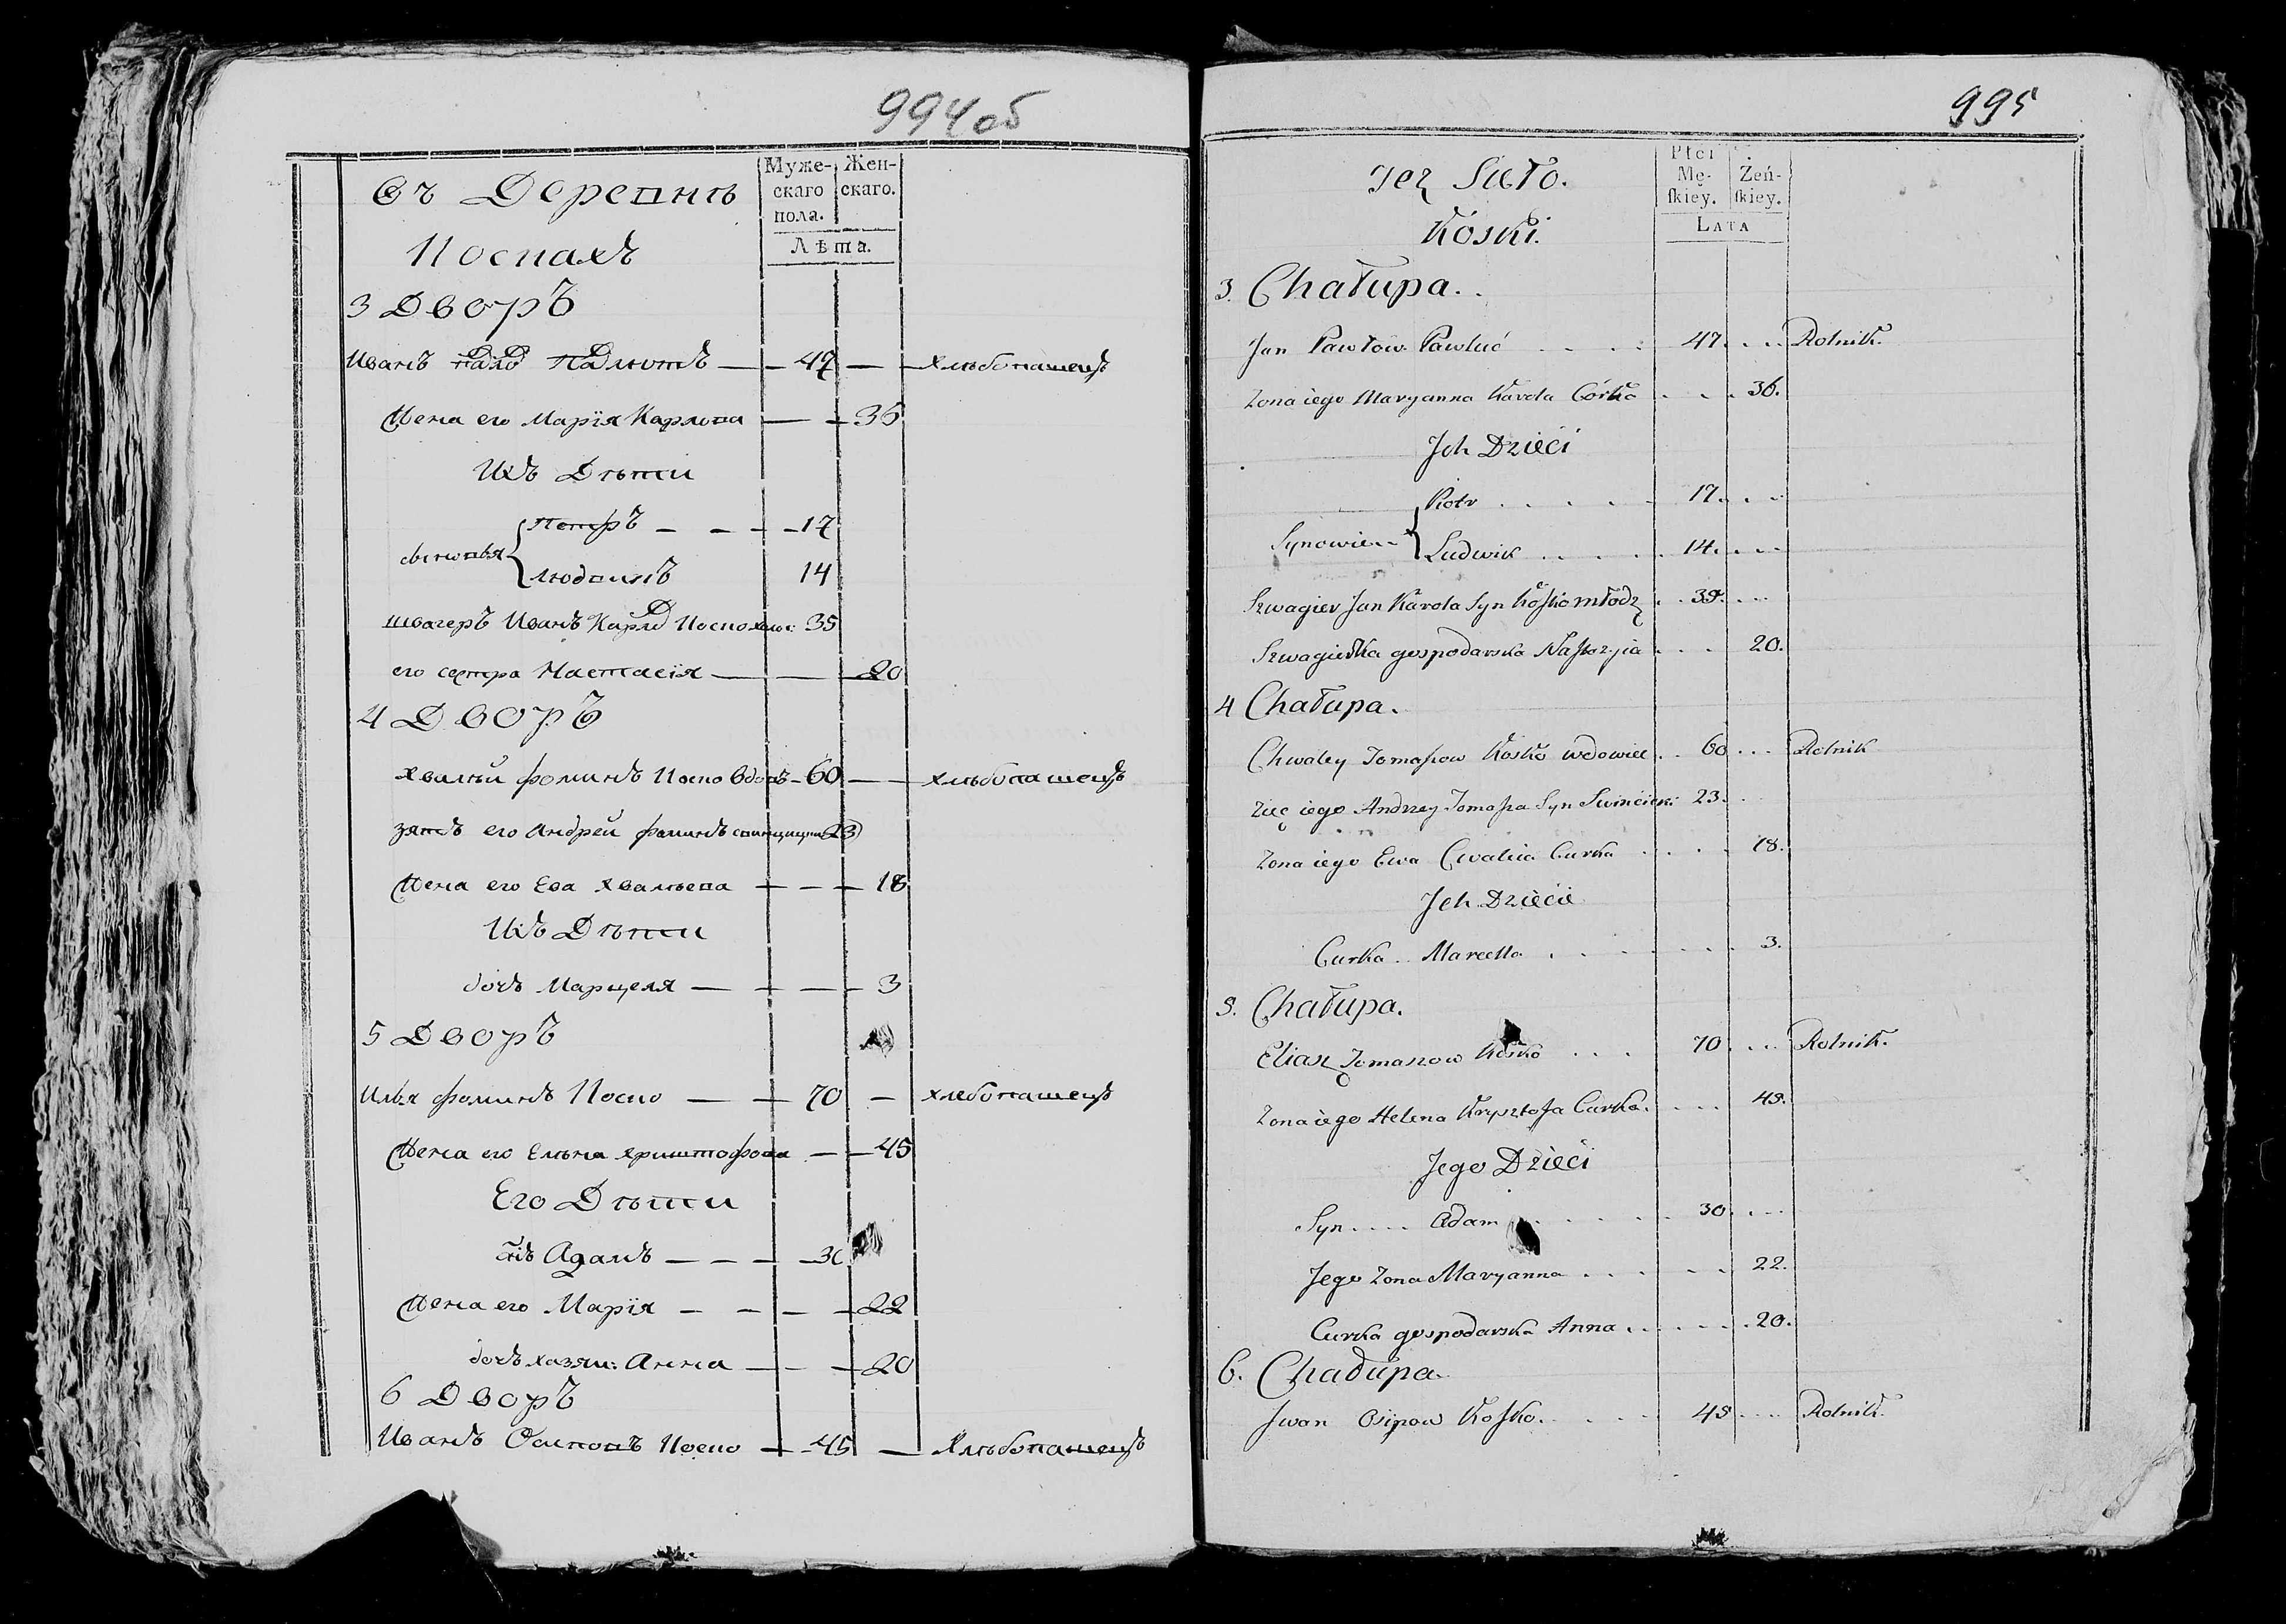 994об
Муже-
скаго
пола.
Жен-
скаго.
Лѣта.
въ Деревнѣ
Коскахъ
3 Дворъ
Иванъ Павло Павлютъ — — 47 — — хлѣбопашецъ
Жена его Марія Карлова — — 36
Ихъ Дѣти
сыновья { Петръ — — — 17
Людвикъ 14
швагеръ Иванъ Карло Коско холос: 35
его сестра Настасія — — 20
4 Дворъ
Хвалѣй Фоминъ Коско вдовъ — 60 — — хлѣбопашецъ
зять его Андрей Фоминъ 23
Жена его Ева Хвалѣева — — — 18
Ихъ Дѣти
дочь Марцеля — — — — 3
5 Дворъ
Илья Фоминъ Коско — — 70 — хлебопашецъ
Жена его Елѣна Криштофова — — 45
Его Дѣти
снъ Адамъ — — — — 30
Жена его Марія — — — — 22
дочь хазяи: Анна — — — 20
6 Дворъ
Иванъ Осиповъ Коско — — 45 — Хлѣбопашецъ
995
Płci
Mę-
skiey.
Żeń-
skiey.
LATA
Jez Sieło.
Kóski.
3. Chałupa..
Jan Pawłow Pawluć . . . . 47. . . . Rolnik.
Zona iego Maryanna Karola Córka . . . 36.
Ich Dzieci
Synowie { Piotr . . . . . 17. . . .
Ludwik . . . . . 14. . . .
Szwagier Jan Karola Syn Kosko młodz . . 35. . . .
Szwagierka gospodarska Nastazyia . . . 20.
4 Chałupa.
Chwaley Tomaszow Kosko wdowiec . . 60 . . . Rolnik
Zięc iego Andrzey Tomasza Syn Swincicki 23. .
Zona iego Ewa Cwalia Curka . . . . 18.
Ich Dziecie
Curka .. Marcella . . . . . . . 3.
5. Chałupa.
Eliasz Tomaszow Kosko . . . 70 . . . Rolnik.
Zona iego Helena Krzysztofa Curka. . . . 45.
Jego Dzieci
Syn .... Adam . . . . . . 30 . . .
Jego Zona Maryanna . . . . . 22.
Curka gospodarska Anna . . . . . . 20.
6. Chałupa.
Jwan Osipow Kosko. . . . . 45 . . . . Rolnik.